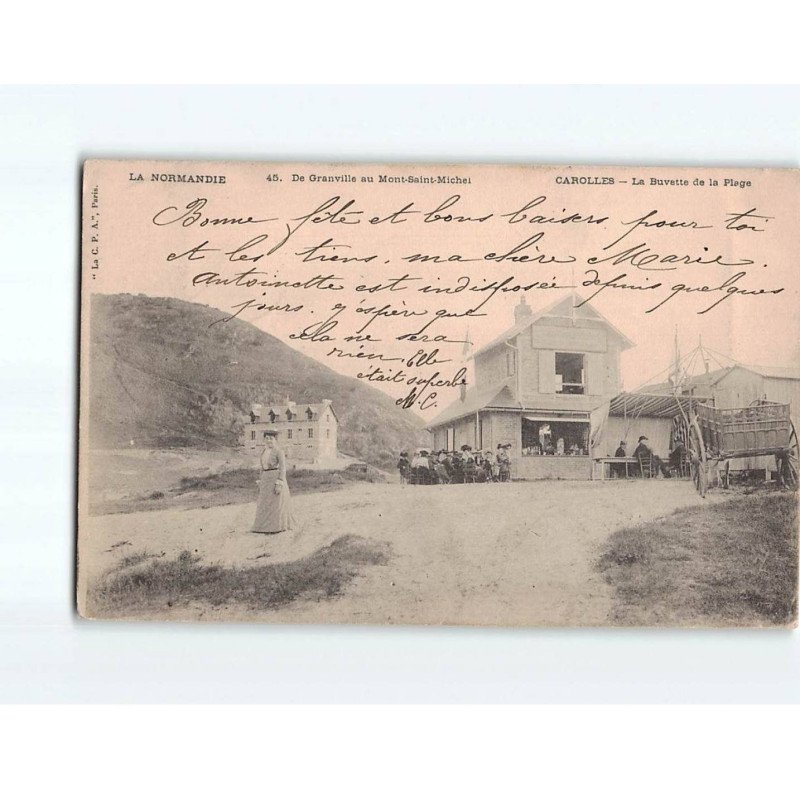 LA NORMANDIE 45. De Granville au Mont-Saint-Michel CAROLLES — La Buvette de la Plage
"La C. P. A.", Paris.
Bonne fête et bons baisers pour toi
et les tiens, ma chère Marie.
Antoinette est indisposée depuis quelques
jours. j'espère que
cela ne sera
rien. Elle
était superbe
M. C.